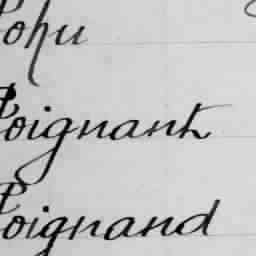 Pohu
Poignant
Poignand